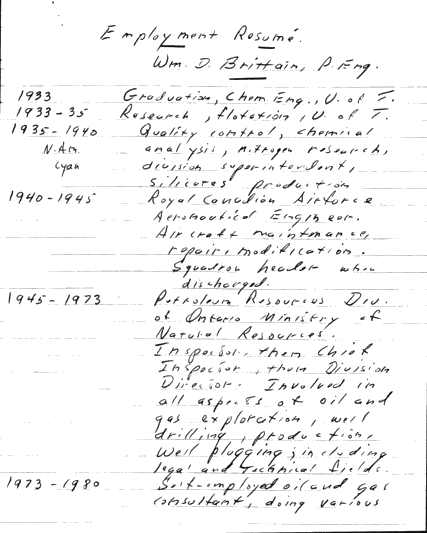 Employment Resumé.
Wm. D. Brittain, P. Eng.
1933 Graduation, Chem. Eng., U. of T.
1933-35 Research, flotation, U. of T.
1935-1940 Quality control, chemical
N. Am. analysis, nitrogen research,
Cyan division superintendent,
silicates production
1940-1945 Royal Canadian Airforce
Aeronautical Engineer.
Aircraft maintenance,
repair, modification.
Squadron header when
discharged.
1945-1973 Petroleum Resources Div.
of Ontario Ministry of
Natural Resources.
Inspector, then Chief
Inspector, then Division
Director. Involved in
all aspects of oil and
gas exploration, well
drilling, production,
well plugging, including
legal and technical fields.
1973-1980 Self-employed oil and gas
consultant, doing various